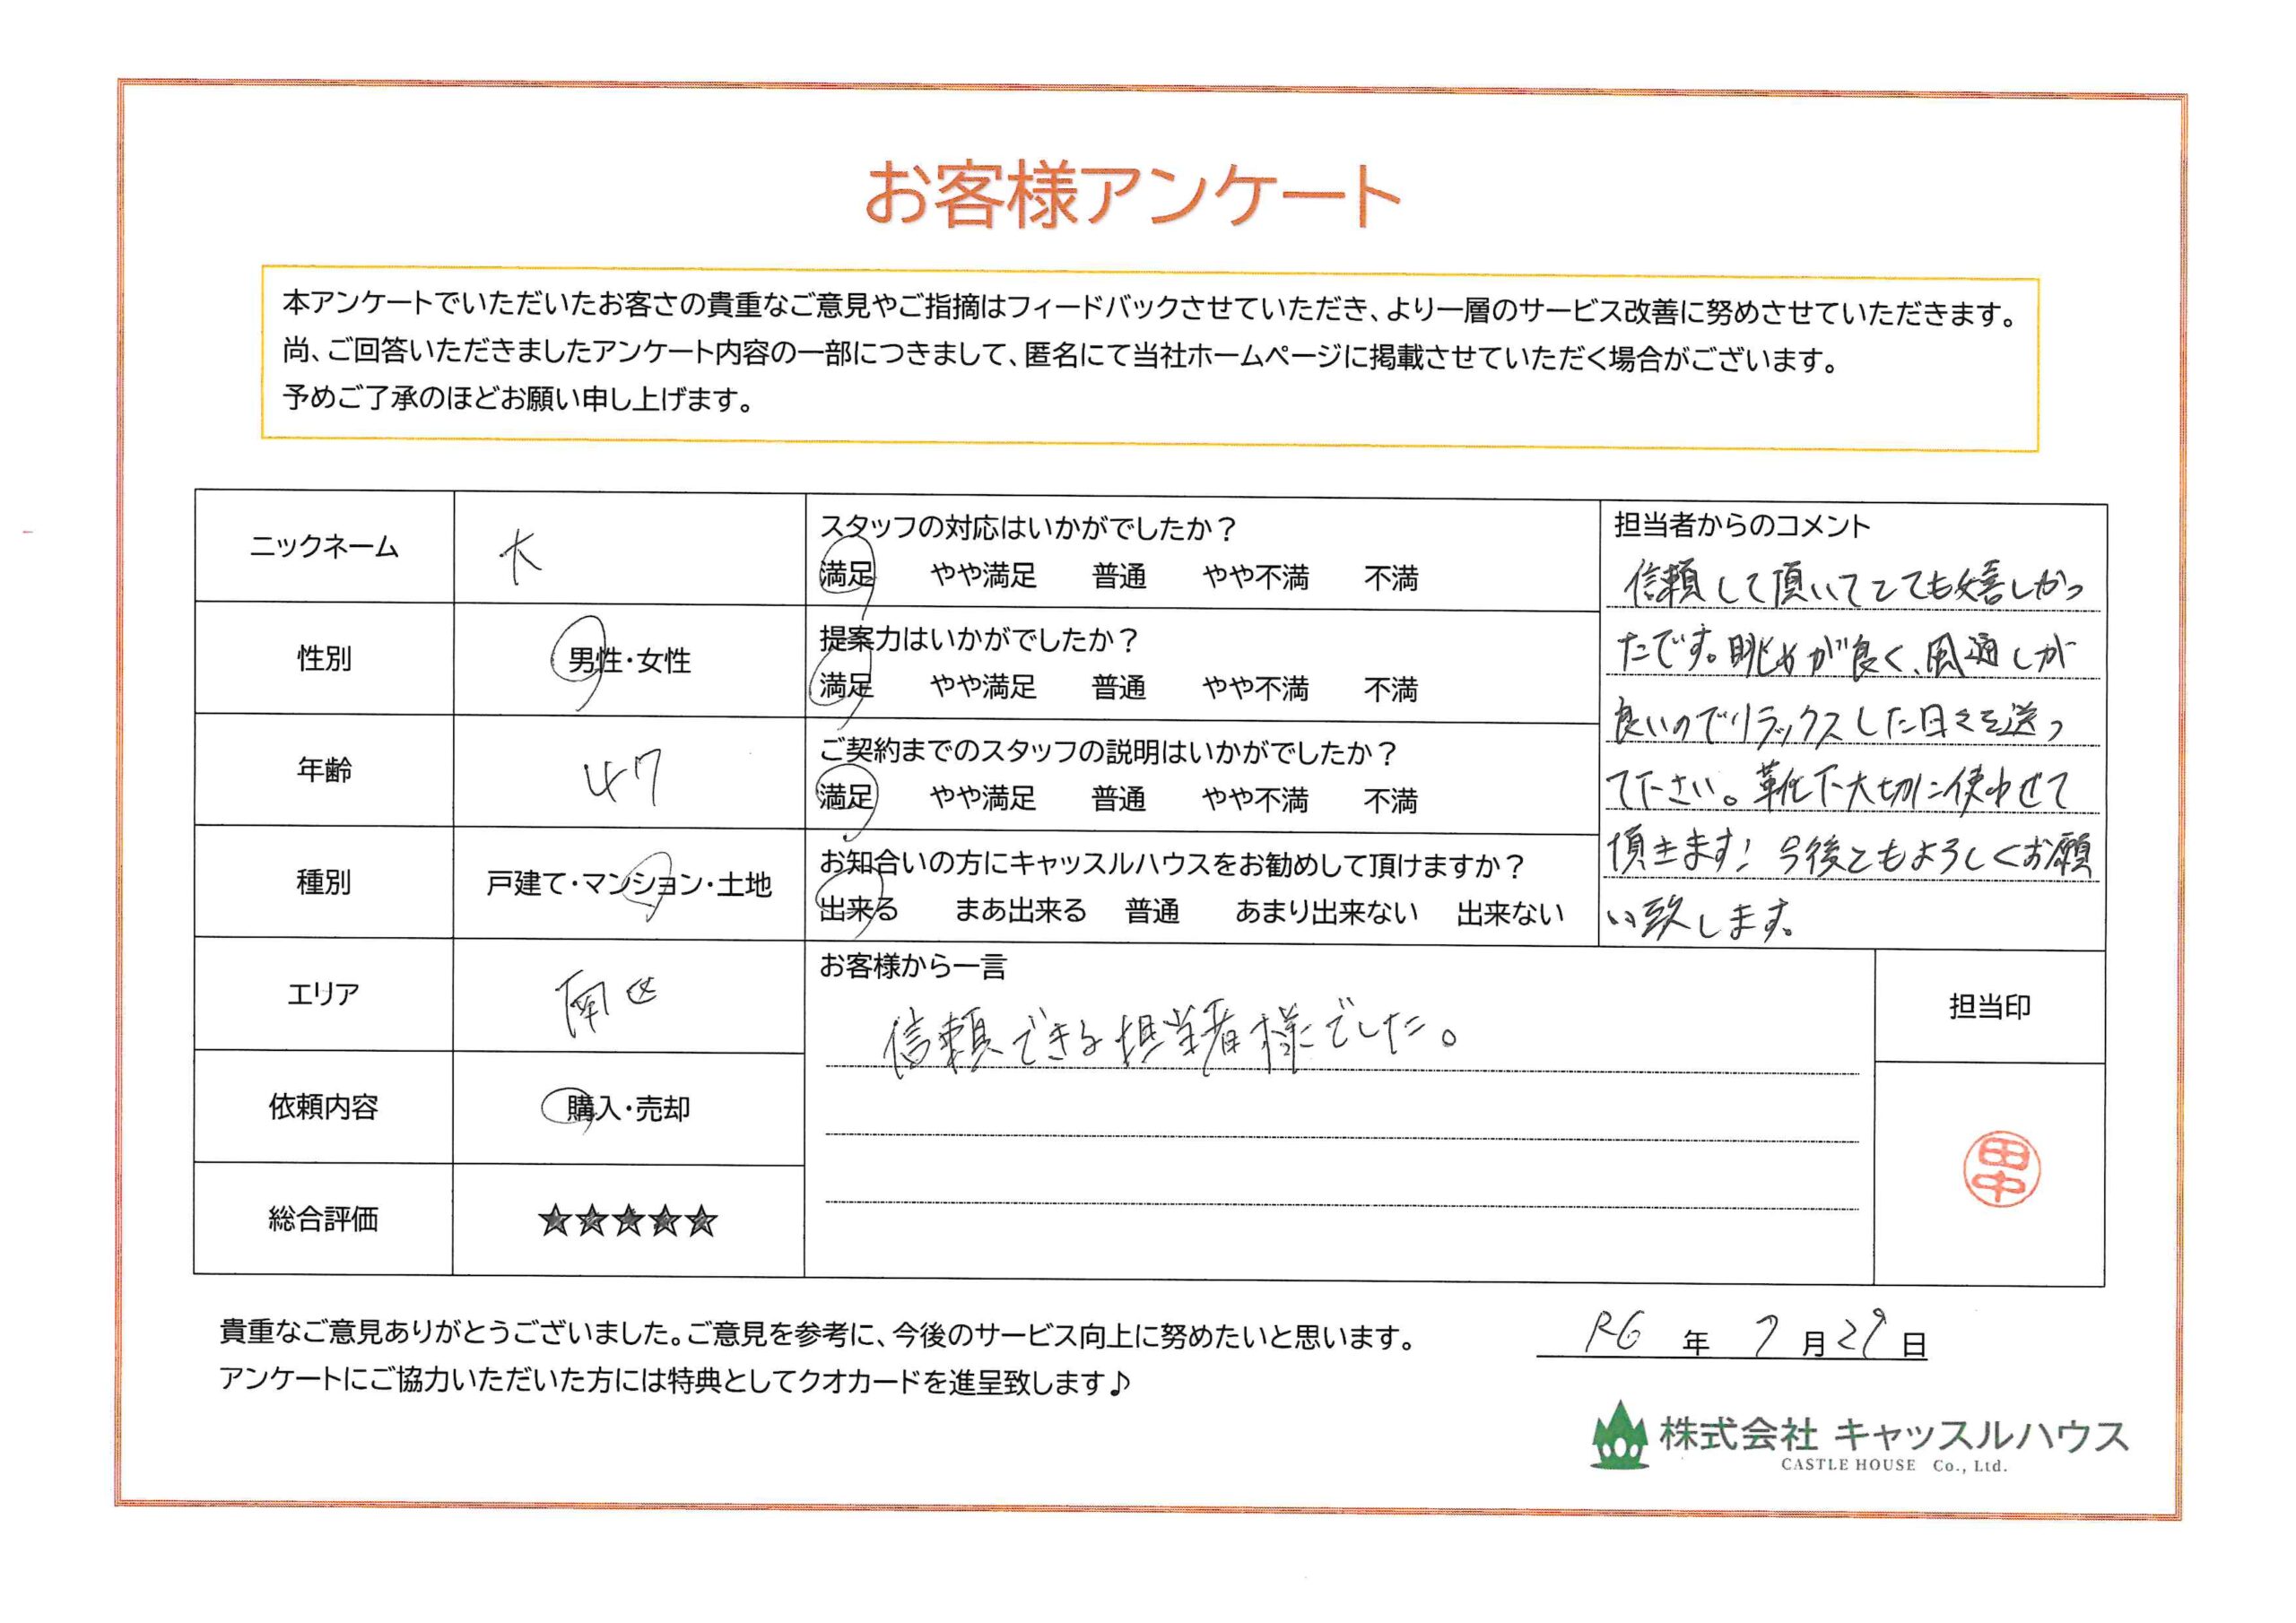 お客様アンケート
本アンケートでいただいたお客さの貴重なご意見やご指摘はフィードバックさせていただき、より一層のサービス改善に努めさせていただきます。
尚、ご回答いただきましたアンケート内容の一部につきまして、匿名にて当社ホームページに掲載させていただく場合がございます。
予めご了承のほどお願い申し上げます。
ニックネーム
性別
男性・女性
年齢
47
種別
戸建て・マンション・土地
エリア
南区
依頼内容
購入・売却
総合評価
★★★★★
スタッフの対応はいかがでしたか？
満足 やや満足 普通 やや不満 不満
提案力はいかがでしたか？
満足 やや満足 普通 やや不満 不満
ご契約までのスタッフの説明はいかがでしたか？
満足 やや満足 普通 やや不満 不満
お知合いの方にキャッスルハウスをお勧めして頂けますか？
出来る まあ出来る 普通 あまり出来ない 出来ない
担当者からのコメント
信頼して頂いてとても嬉しかっ
たです。眺めが良く、風通しが
良いのでリラックスした日々を送っ
て下さい。靴下大切に使わせて
頂きます！今後ともよろしくお願
い致します。
お客様から一言
信頼できる担当者様でした。
担当印
田中
貴重なご意見ありがとうございました。ご意見を参考に、今後のサービス向上に努めたいと思います。
アンケートにご協力いただいた方には特典としてクオカードを進呈致します♪
R6 年 7 月 29 日
株式会社 キャッスルハウス
CASTLE HOUSE Co., Ltd.